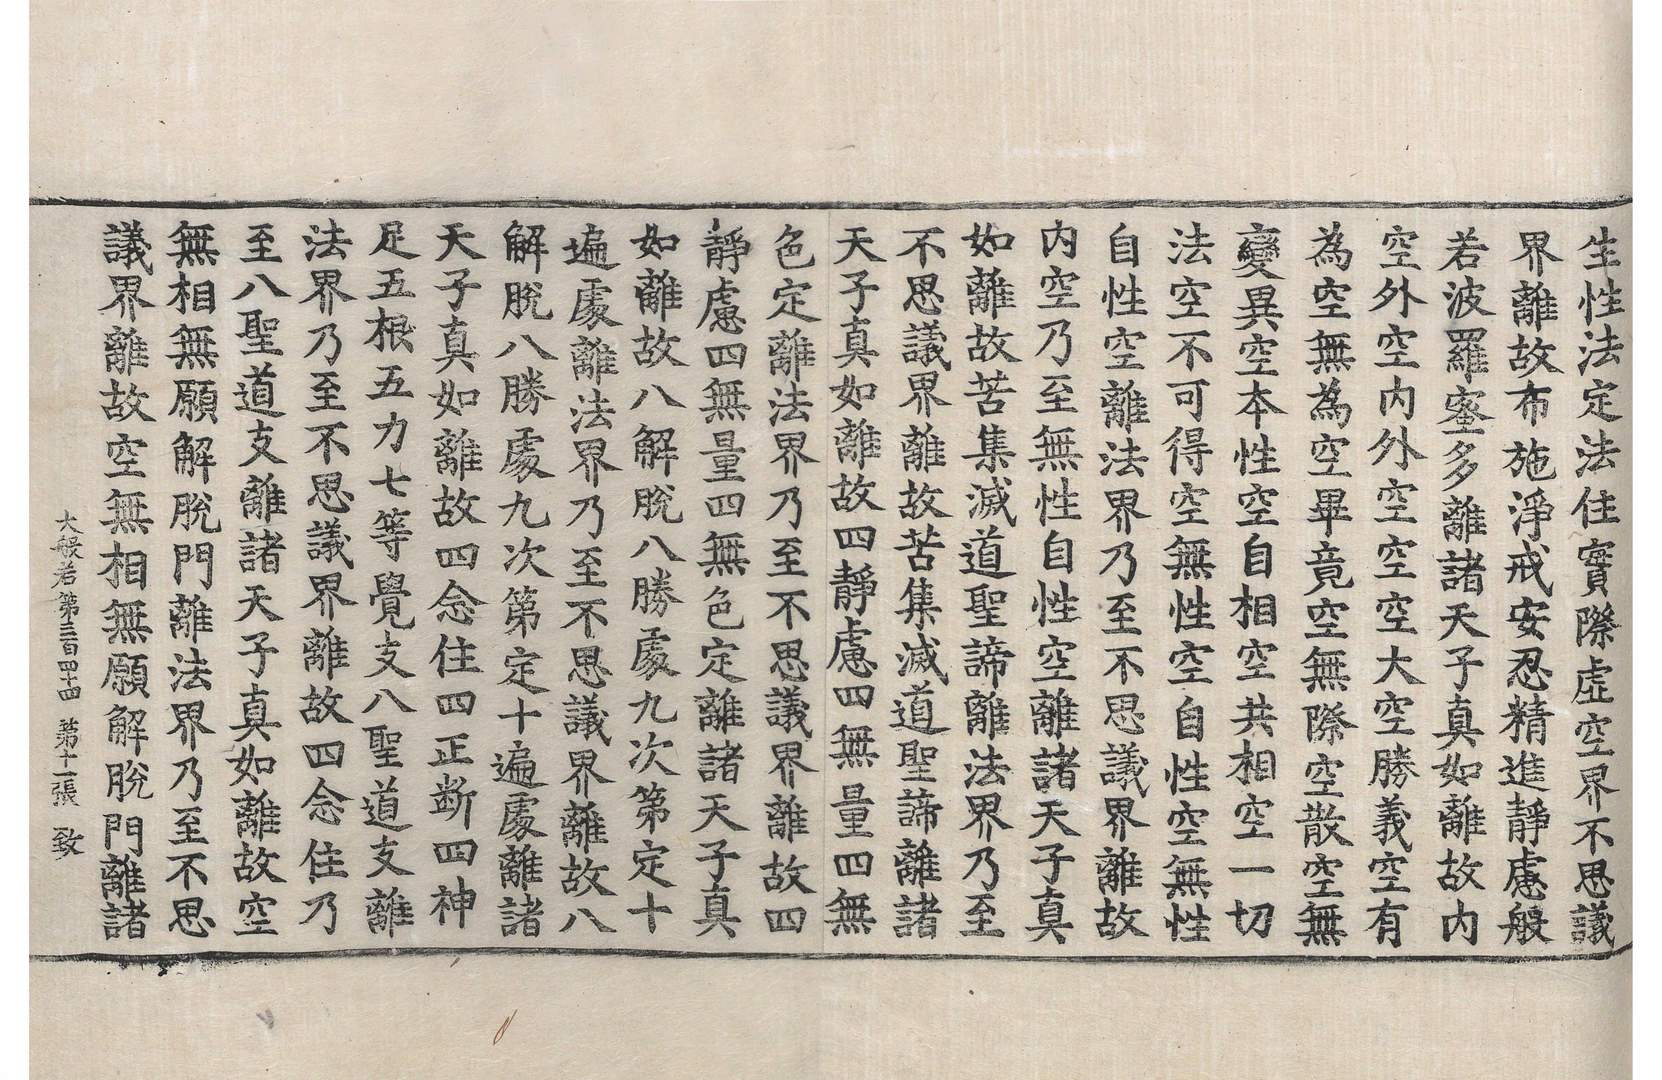 生性法定法住實際虛空界不思議
界離故布施淨戒安忍精進靜慮般
若波羅蜜多離諸天子真如離故內
空外空內外空空空大空勝義空有
為空無為空畢竟空無際空散空無
變異空本性空自相空共相空一切
法空不可得空無性空自性空無性
自性空離法界乃至不思議界離故
內空乃至無性自性空離諸天子真
如離故苦集滅道聖諦離法界乃至
不思議界離故苦集滅道聖諦離諸
天子真如離故四靜慮四無量四無
色定離法界乃至不思議界離故四
靜慮四無量四無色定離諸天子真
如離故八解脫八勝處九次第定十
遍處離法界乃至不思議界離故八
解脫八勝處九次第定十遍處離諸
天子真如離故四念住四正斷四神
足五根五力七等覺支八聖道支離
法界乃至不思議界離故四念住乃
至八聖道支離諸天子真如離故空
無相無願解脫門離法界乃至不思
議界離故空無相無願解脫門離諸
大般若第三百四十四 第十一張 致